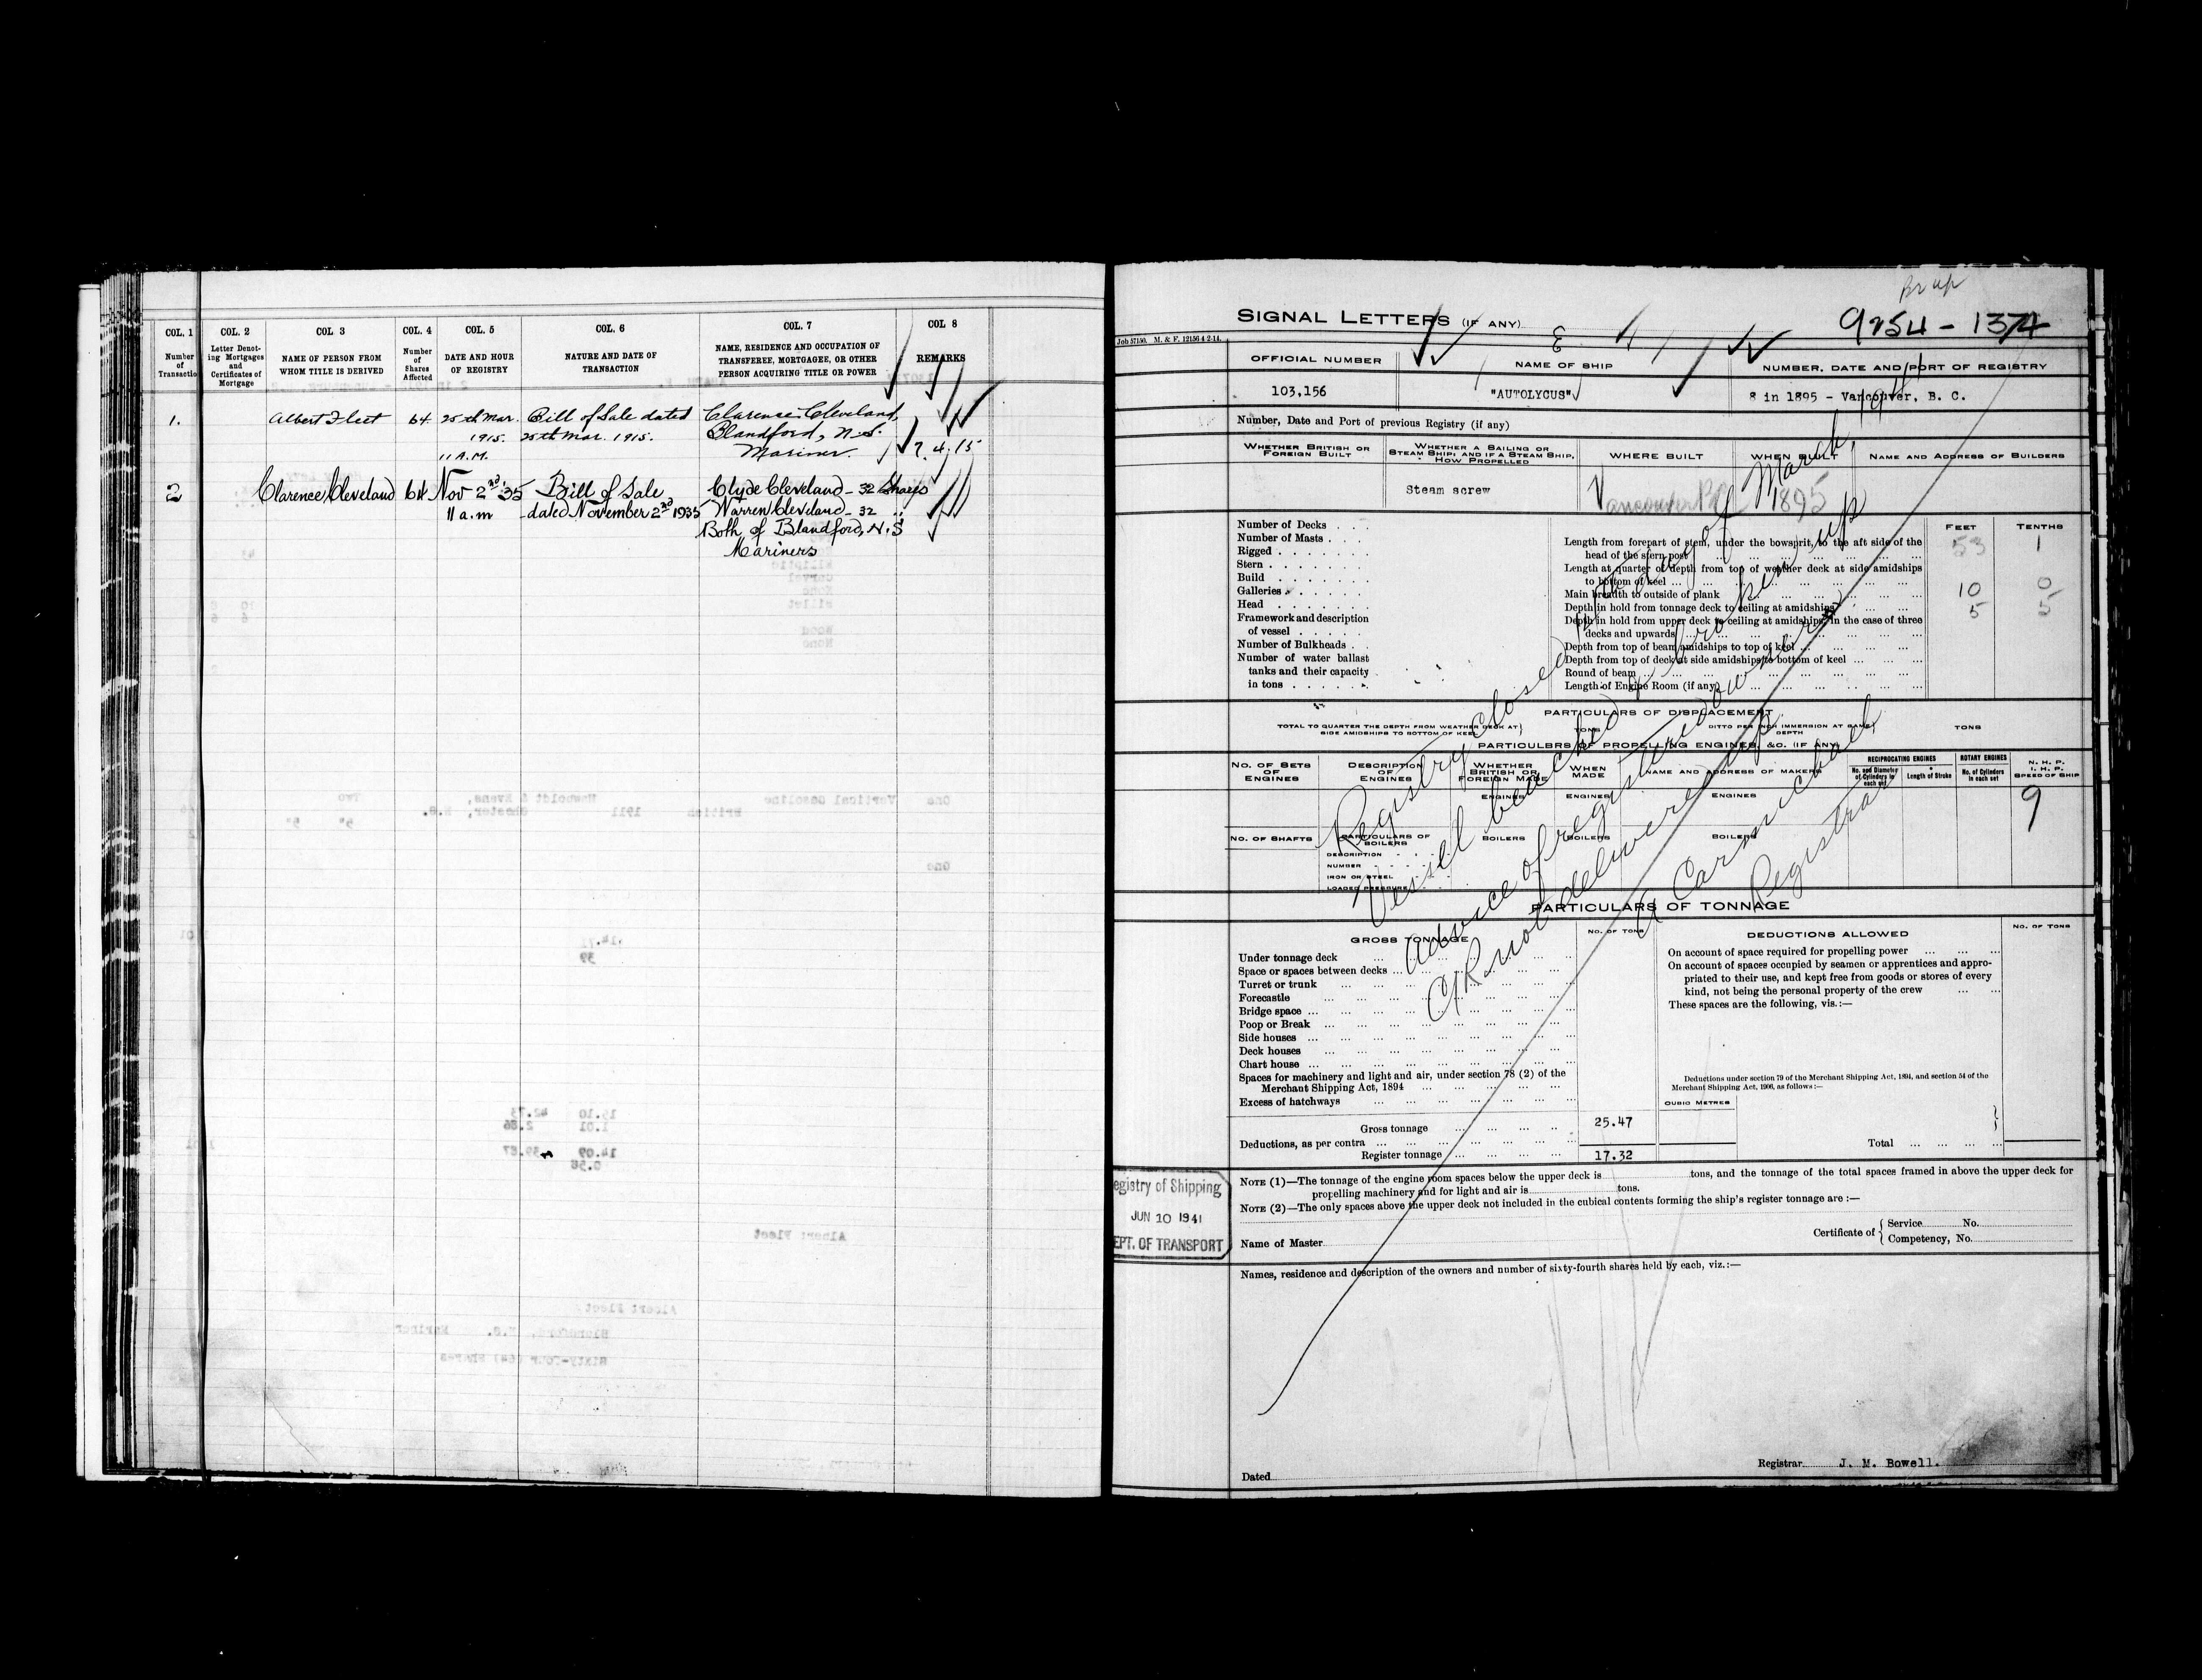 COL. 1
COL. 2
COL. 3
COL. 4
COL. 5
COL. 6
COL. 7
COL 8
Number of Transactio
Letter Denoting Mortgages and Certificates of Mortgage
NAME OF PERSON FROM WHOM TITLE IS DERIVED
Number of Shares Affected
DATE AND HOUR OF REGISTRY
NATURE AND DATE OF TRANSACTION
NAME, RESIDENCE AND OCCUPATION OF TRANSFEREE, MORTGAGEE, OR OTHER PERSON ACQUIRING TITLE OR POWER
REMARKS
1. Albert Fleet 64 25th Mar. Bill of Sale dated Clarence Cleveland,
1915. 25th Mar. 1915. Blandford, N.S.
11 A.M. Mariner. 7.4.15
2 Clarence Cleveland 64 Nov 2nd 35 Bill of Sale Clyde Cleveland - 32 Shares
11 a.m dated November 2nd 1935 Warren Cleveland - 32 "
Both of Blandford, N.S
Mariners
Br up
SIGNAL LETTERS (IF ANY)
9254 - 1374
Job 57150. M. & F. 12156 4-2-14.
OFFICIAL NUMBER
NAME OF SHIP
NUMBER, DATE AND PORT OF REGISTRY
103,156
"AUTOLYCUS"
8 in 1895 - Vancouver, B. C.
Number, Date and Port of previous Registry (if any)
WHETHER BRITISH OR FOREIGN BUILT
WHETHER A SAILING OR STEAM SHIP; AND IF A STEAM SHIP, HOW PROPELLED
WHERE BUILT
WHEN BUILT
NAME AND ADDRESS OF BUILDERS
Steam screw
Vancouver BC
1895
Number of Decks
Number of Masts
Rigged
Stern
Build
Galleries
Head
Framework and description
of vessel
Number of Bulkheads
Number of water ballast
tanks and their capacity
in tons
FEET TENTHS
Length from forepart of stem, under the bowsprit, to the aft side of the
head of the stern post 53 1
Length at quarter of depth from top of weather deck at side amidships
to bottom of keel
Main breadth to outside of plank 10 0
Depth in hold from tonnage deck to ceiling at amidships 5 5
Depth in hold from upper deck to ceiling at amidships, in the case of three
decks and upwards
Depth from top of beam amidships to top of keel
Depth from top of deck at side amidships to bottom of keel
Round of beam
Length of Engine Room (if any)
PARTICULARS OF DISPLACEMENT
TOTAL TO QUARTER THE DEPTH FROM WEATHER DECK AT SIDE AMIDSHIPS TO BOTTOM OF KEEL
TONS
DITTO PER INCH IMMERSION AT SAME DEPTH
TONS
PARTICULBRS OF PROPELLING ENGINES, &O. (IF ANY)
NO. OF SETS OF ENGINES
DESCRIPTION OF ENGINES
WHETHER BRITISH OR FOREIGN MADE
WHEN MADE
NAME AND ADDRESS OF MAKERS
RECIPROCATING ENGINES
No. and Diameter of Cylinders in each set
Length of Stroke
ROTARY ENGINES
No. of Cylinders in each set
N. H. P.
I. H. P.
SPEED OF SHIP
ENGINES ENGINES ENGINES
9
NO. OF SHAFTS
PARTICULARS OF BOILERS
BOILERS BOILERS BOILERS
DESCRIPTION
NUMBER
IRON OR STEEL
LOADED PRESSURE
Registry closed day of March, 191
Vessel beached & broken up
Advice of registered owners
C/R not delivered up
A Carmichael
Registrar
PARTICULARS OF TONNAGE
GROSS TONNAGE
NO. OF TONS
DEDUCTIONS ALLOWED
NO. OF TONS
Under tonnage deck
Space or spaces between decks
Turret or trunk
Forecastle
Bridge space
Poop or Break
Side houses
Deck houses
Chart house
Spaces for machinery and light and air, under section 78 (2) of the
Merchant Shipping Act, 1894
Excess of hatchways
Gross tonnage 25.47
Deductions, as per contra
Register tonnage 17.32
On account of space required for propelling power
On account of spaces occupied by seamen or apprentices and appro-
priated to their use, and kept free from goods or stores of every
kind, not being the personal property of the crew
These spaces are the following, vis.:—
Deductions under section 79 of the Merchant Shipping Act, 1894, and section 54 of the
Merchant Shipping Act, 1906, as follows:—
CUBIC METRES
Total
egistry of Shipping
JUN 10 1941
EPT. OF TRANSPORT
NOTE (1)—The tonnage of the engine room spaces below the upper deck is tons, and the tonnage of the total spaces framed in above the upper deck for
propelling machinery and for light and air is tons.
NOTE (2)—The only spaces above the upper deck not included in the cubical contents forming the ship's register tonnage are :—
Name of Master
Certificate of { Service No.
Competency, No.
Names, residence and description of the owners and number of sixty-fourth shares held by each, viz.:—
Dated
Registrar J. M. Bowell.